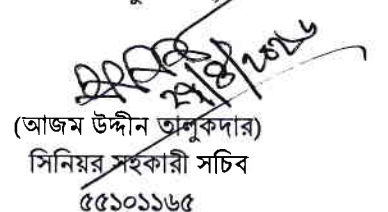 (আজম উদ্দীন তালুকদার)
সিনিয়র সহকারী সচিব
৫৫১০১১৬৫